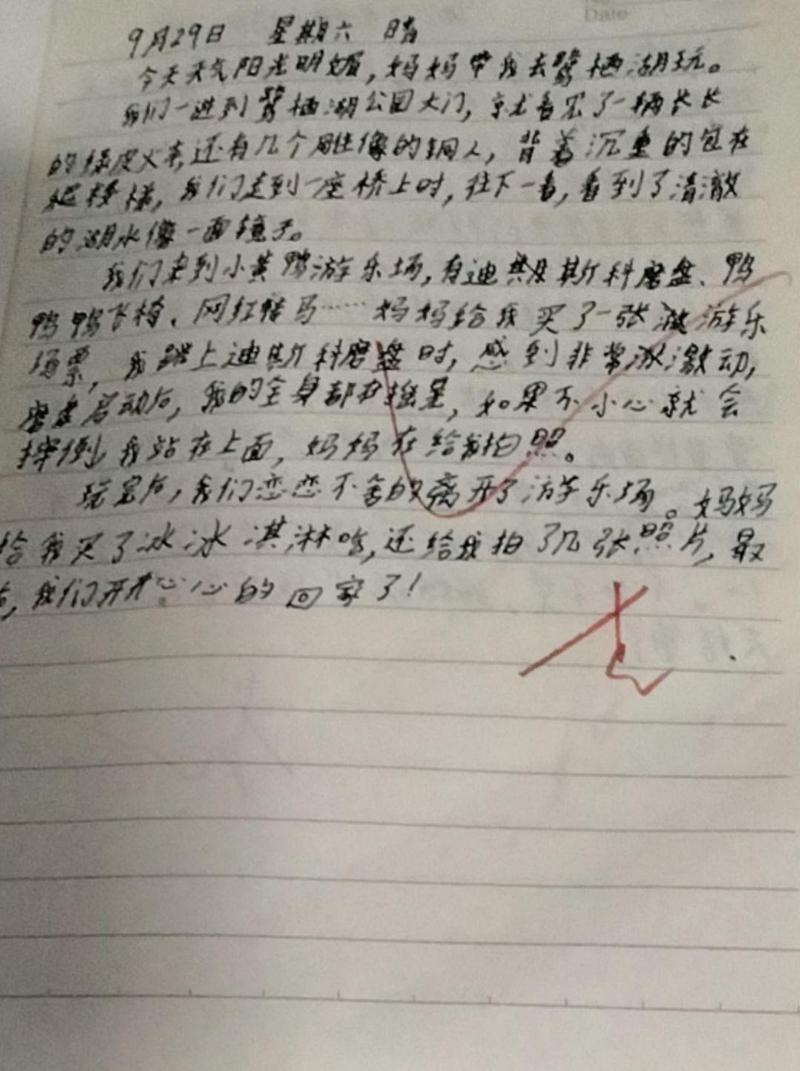 Date
9月29日 星期六 晴
今天天气阳光明媚，妈妈带我去鹭栖湖玩。
我们一进到鹭栖湖公园大门，就看见了一辆长长
的绿皮火车，还有几个雕像的铜人，背着沉重的包在
爬楼梯，我们走到一座桥上时，往下一看，看到了清澈
的湖水像一面镜子。
我们来到小黄鸭游乐场，有迪斯科磨盘、鸭
鸭鸭飞椅、网红转马……妈妈给我买了一张游乐
场票，我踏上迪斯科磨盘时，感到非常激动，
磨盘启动后，我的全身都在摇晃，如果不小心就会
摔倒我站在上面，妈妈在给我拍照。
玩完后，我们恋恋不舍的离开了游乐场。妈妈
给我买了冰冰淇淋吃，还给我拍了几张照片，最
后，我们开开心心的回家了！